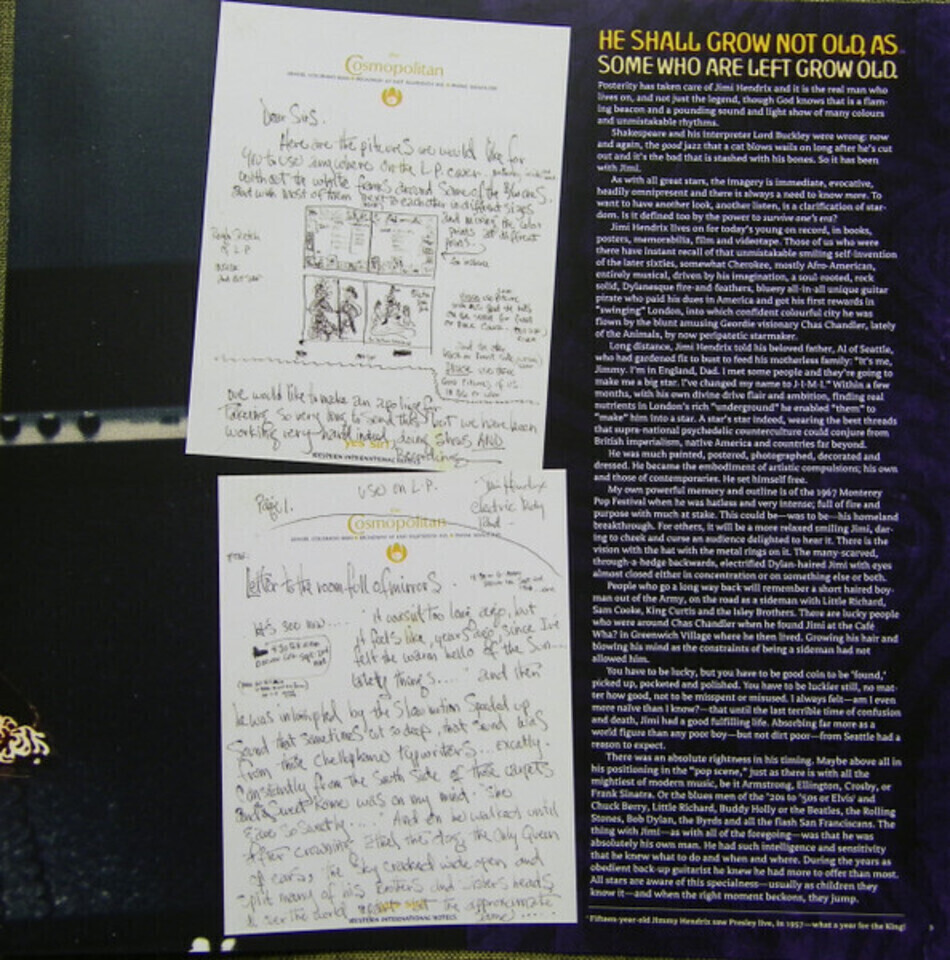 the
Cosmopolitan
Dear Sirs.
Here are the pictures we would like for
you to use anywhere on the L.P. cover.
without the white frames around some of the B/W ones.
and with most of them next to each other in different sizes
and mixing the color
prints at different
points.
Rough Sketch
of L.P.
inside
we would like to make an apology for
taking so very long to send this but we have been
working very hard indeed, doing shows AND
Recording
yes sir
WESTERN INTERNATIONAL HOTELS
Page 1.
USE ON L.P.
Jimi Hendrix
electric lady
land
the
Cosmopolitan
Letter to the room full of mirrors.
Let's see now....
it wasn't too long ago, but
it feels like years ago, since I've
felt the warm hello of the Sun...
lately things.... and then
he was interrupted by the Slow motion Speeded up
Sound that sometimes cut so deep, that sound was
from those cellophane typewriters... exactly.
Constantly from the South Side of those carpets
and Sweet home was on my mind. She
gave so sweetly...." And on he walked until
After crowning Ethel the dog, the Only Queen
of ears, the Sky cracked wide open and
split many of his brothers and sisters heads
WESTERN INTERNATIONAL HOTELS
HE SHALL GROW NOT OLD, AS
SOME WHO ARE LEFT GROW OLD.
Posterity has taken care of Jimi Hendrix and it is the real man who
lives on, and not just the legend, though God knows that is a flam-
ing beacon and a pounding sound and light show of many colours
and unmistakable rhythms.
Shakespeare and his interpreter Lord Buckley were wrong: now
and again, the good jazz that a cat blows wails on long after he's cut
out and it's the bad that is stashed with his bones. So it has been
with Jimi.
As with all great stars, the imagery is immediate, evocative,
headily omnipresent and there is always a need to know more. To
want to have another look, another listen, is a clarification of star-
dom. Is it defined too by the power to survive one's era?
Jimi Hendrix lives on for today's young on record, in books,
posters, memorabilia, film and videotape. Those of us who were
there have instant recall of that unmistakable smiling self-invention
of the later sixties, somewhat Cherokee, mostly Afro-American,
entirely musical, driven by his imagination, a soul-rooted, rock
solid, Dylanesque fire-and-feathers, bluesy all-in-all unique guitar
pirate who paid his dues in America and got his first rewards in
"swinging" London, into which confident colourful city he was
flown by the blunt amusing Geordie visionary Chas Chandler, lately
of the Animals, by now peripatetic starmaker.
Long distance, Jimi Hendrix told his beloved father, Al of Seattle,
who had gardened fit to bust to feed his motherless family: "It's me,
Jimmy. I'm in England, Dad. I met some people and they're going to
make me a big star. I've changed my name to J-I-M-I." Within a few
months, with his own divine drive flair and ambition, finding real
nutrients in London's rich "underground" he enabled "them" to
"make" him into a star. A star's star indeed, wearing the best threads
that supra-national psychedelic counterculture could conjure from
British imperialism, native America and countries far beyond.
He was much painted, postered, photographed, decorated and
dressed. He became the embodiment of artistic compulsions; his own
and those of contemporaries. He set himself free.
My own powerful memory and outline is of the 1967 Monterey
Pop Festival when he was hatless and very intense; full of fire and
purpose with much at stake. This could be—was to be—his homeland
breakthrough. For others, it will be a more relaxed smiling Jimi, dar-
ing to cheek and curse an audience delighted to hear it. There is the
vision with the hat with the metal rings on it. The many-scarved,
through-a-hedge backwards, electrified Dylan-haired Jimi with eyes
almost closed either in concentration or on something else or both.
People who go a long way back will remember a short haired boy-
man out of the Army, on the road as a sideman with Little Richard,
Sam Cooke, King Curtis and the Isley Brothers. There are lucky people
who were around Chas Chandler when he found Jimi at the Café
Wha? in Greenwich Village where he then lived. Growing his hair and
blowing his mind as the constraints of being a sideman had not
allowed him.
You have to be lucky, but you have to be good coin to be 'found,'
picked up, pocketed and polished. You have to be luckier still, no mat-
ter how good, not to be misspent or misused. I always felt—am I even
more naïve than I know?—that until the last terrible time of confusion
and death, Jimi had a good fulfilling life. Absorbing far more as a
world figure than any poor boy—but not dirt poor—from Seattle had a
reason to expect.
There was an absolute rightness in his timing. Maybe above all in
his positioning in the "pop scene," just as there is with all the
mightiest of modern music, be it Armstrong, Ellington, Crosby, or
Frank Sinatra. Or the blues men of the '20s to '50s or Elvis¹ and
Chuck Berry, Little Richard, Buddy Holly or the Beatles, the Rolling
Stones, Bob Dylan, the Byrds and all the flash San Franciscans. The
thing with Jimi—as with all of the foregoing—was that he was
absolutely his own man. He had such intelligence and sensitivity
that he knew what to do and when and where. During the years as
obedient back-up guitarist he knew he had more to offer than most.
All stars are aware of this specialness—usually as children they
know it—and when the right moment beckons, they jump.
¹ Fifteen-year-old Jimmy Hendrix saw Presley live, in 1957—what a year for the King!